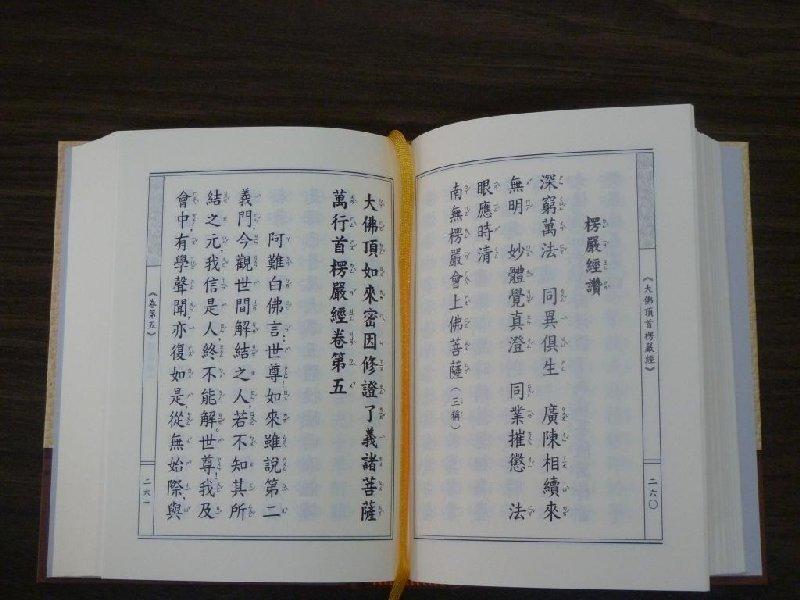 《大佛頂首楞嚴經》
二六〇
楞嚴經讚
深窮萬法 同異俱生 廣陳相續來
無明 妙體覺真澄 同業摧懲 法
眼應時清
南無楞嚴會上佛菩薩(三稱)
大佛頂如來密因修證了義諸菩薩
萬行首楞嚴經卷第五
阿難白佛言世尊如來雖說第二
義門今觀世間解結之人若不知其所
結之元我信是人終不能解世尊我及
會中有學聲聞亦復如是從無始際與
《卷第五》
二六一